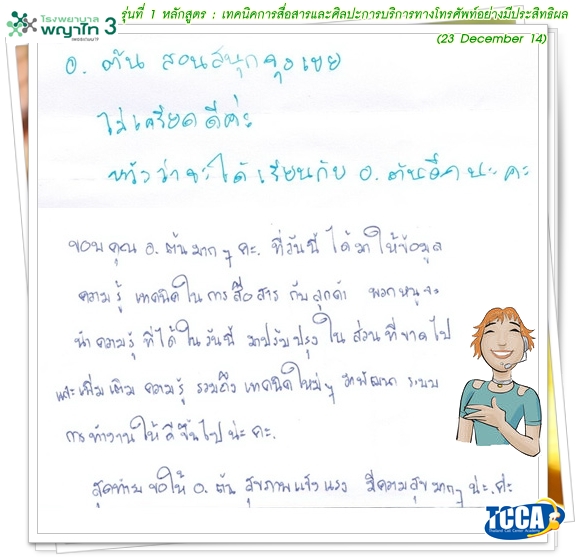 รุ่นที่ 1 หลักสูตร : เทคนิคการสื่อสารและศิลปะการบริการทางโทรศัพท์อย่างมีประสิทธิผล
(23 December 14)
โรงพยาบาล
พญาไท 3
อ. ต้น สอนสนุกจุงเบย
ไม่เครียดดีค่ะ
หวังว่าจะได้เรียนกับ อ. ต้นอีกนะคะ
ขอบคุณ อ. ต้นมาก ๆ คะ. ที่วันนี้ ได้มาให้ข้อมูล
ความรู้ เทคนิคในการสื่อสาร กับลูกค้า พวกหนูจะ
นำความรู้ ที่ได้ในวันนี้ มาปรับปรุง ในส่วนที่ขาดไป
และเพิ่มเติม ความรู้ รวมถึง เทคนิคใหม่ๆ มาพัฒนา ระบบ
การทำงานให้ดีขึ้นไปน่ะคะ.
สุดท้าย ขอให้ อ. ต้น สุขภาพแข็งแรง มีความสุขมากๆ น่ะ.ค่ะ
TCCA
Thailand Call Center Academy